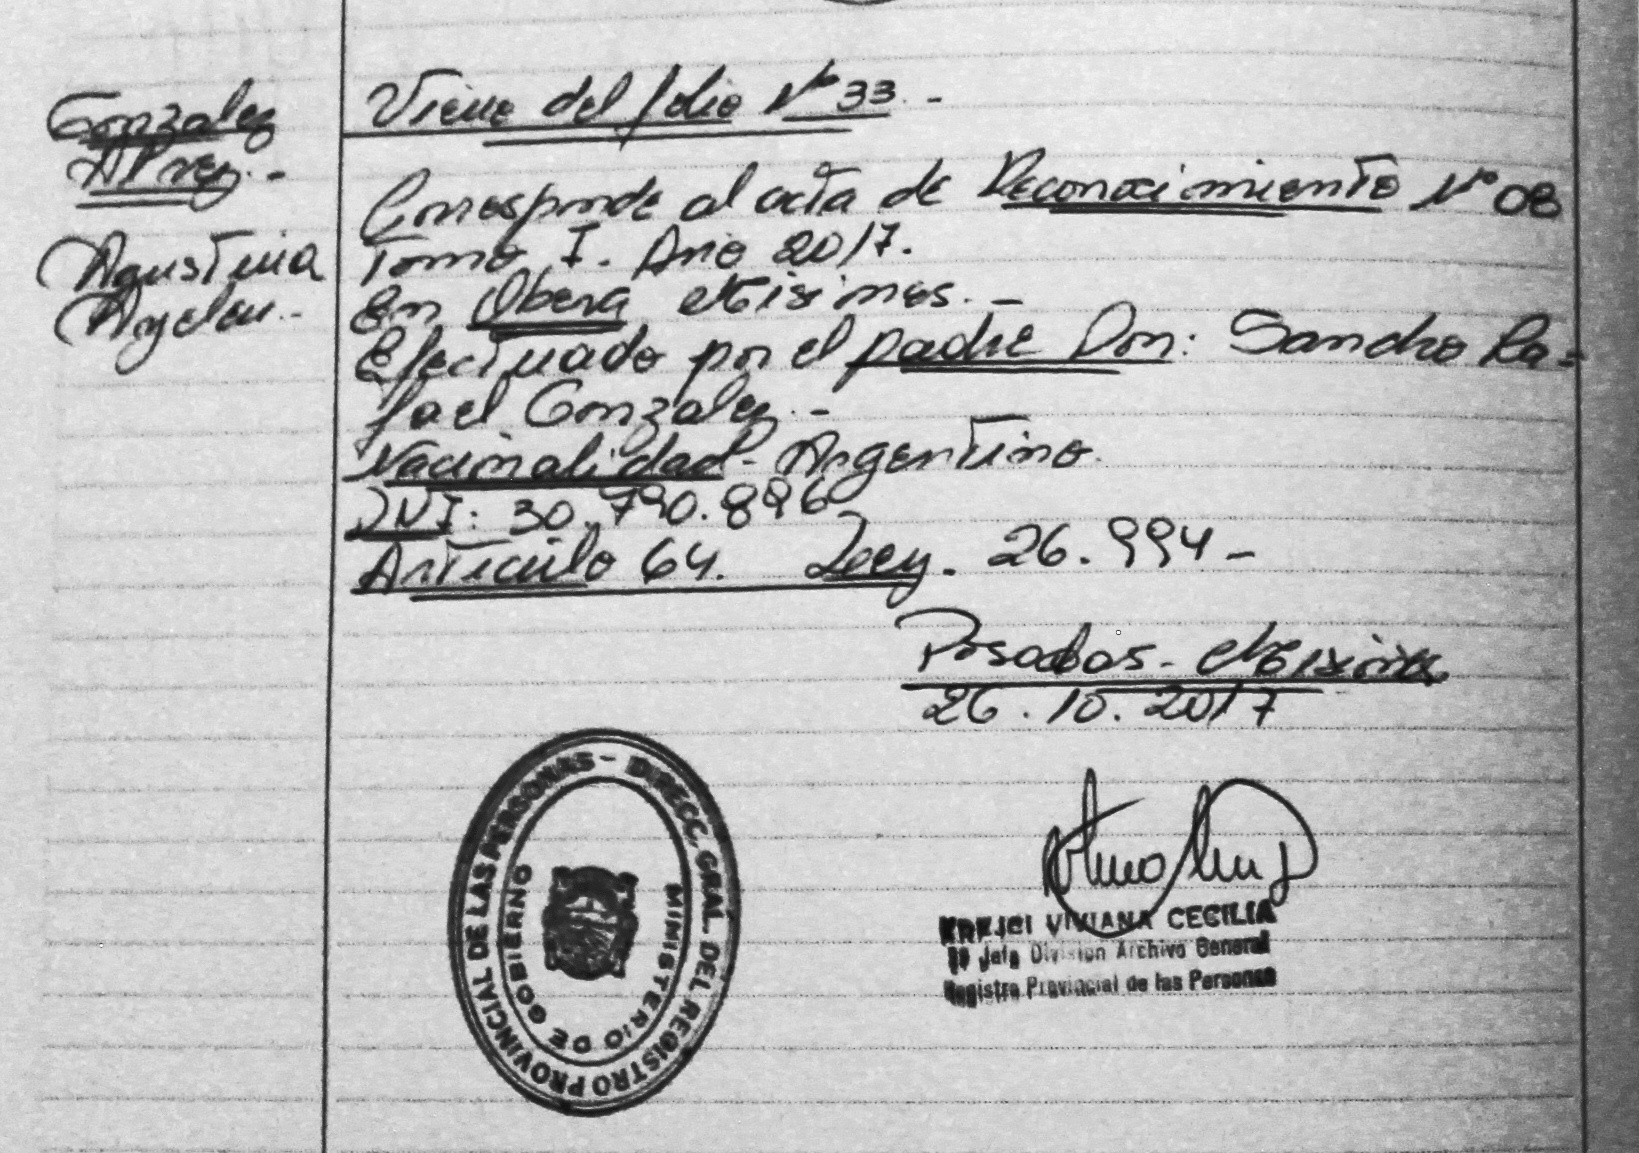 Gonzalez
Agustina
Ayelen.-
Viene del folio Nº 33.-
Corresponde al acta de Reconocimiento Nº 08
Tomo I. Año 2017.
En Obera Misiones.-
Efectuado por el padre Don: Sandro Ra-
fael Gonzalez.-
Nacionalidad- Argentino.
DNI: 30.790.896
Artículo 64. Ley. 26.994-
Posadas- Misiones
26.10.2017
DIRECC. GRAL. DEL REGISTRO PROVINCIAL DE LAS PERSONAS -
MINISTERIO DE GOBIERNO
KREJCI VIVIANA CECILIA
Jefa Division Archivo General
Registro Provincial de las Personas